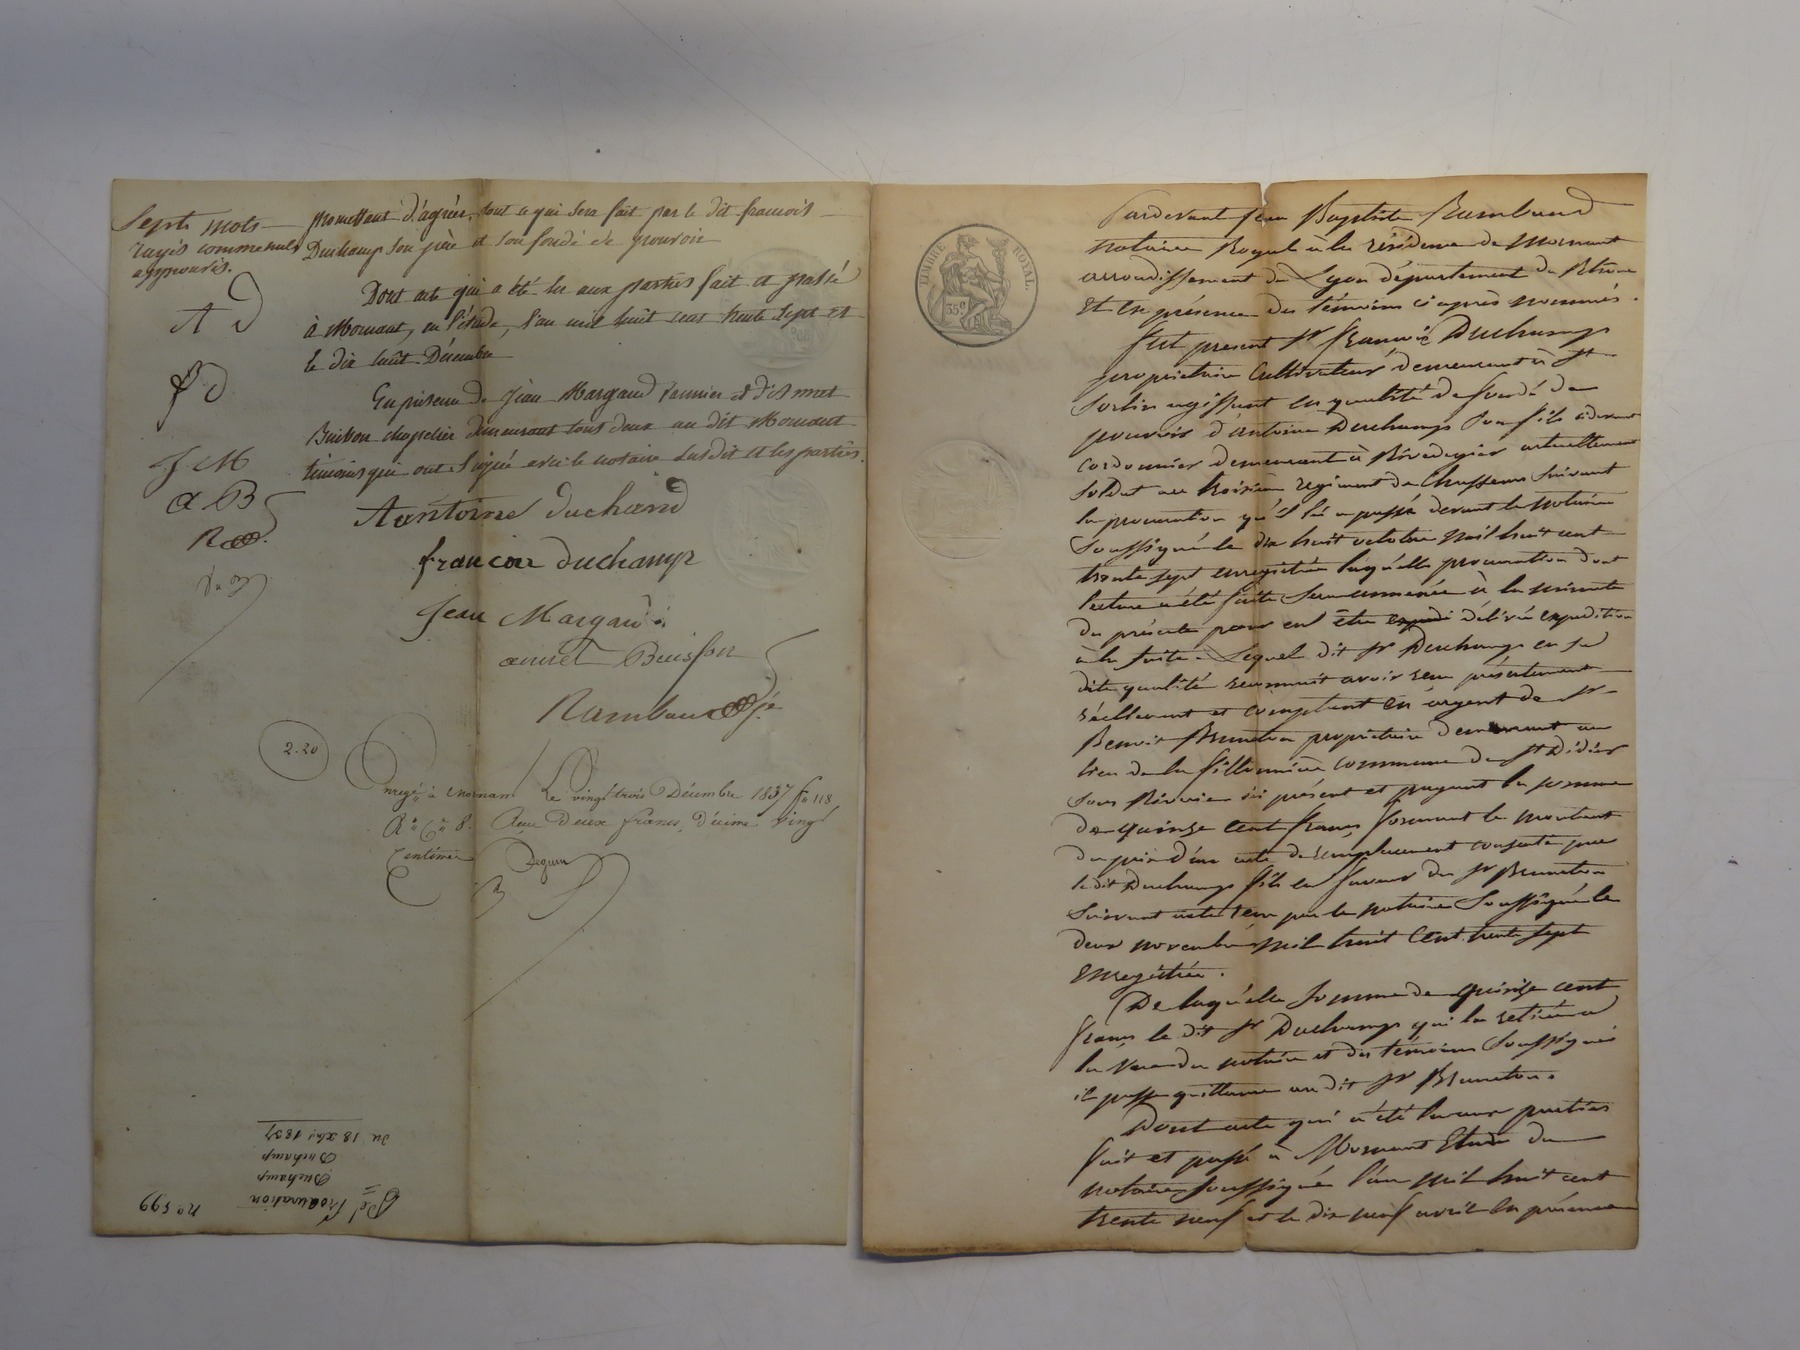 Sept mots
rayés comme nuls
approuvés.
A D
f D
J M
a B
R
promettant d'agréer tout ce qui sera fait par le dit francois
Duchamp son père et son fondé de pouvoir
Dont acte qui a été lu aux parties fait et passé
à Mornant, en l'étude, l'an mil huit cent trente sept et
le dix huit Décembre
En présence de Jean Margaud fermier et d'Annet
Buisson chapelier demeurant tous deux au dit Mornant
témoins qui ont signé avec le notaire susdit et les parties.
Aantoine duchand
francois duchamp
Jean Margaud
annet Buisson
Rambaud
2.20
Enregé à Mornant Le vingt trois Décembre 1837 fo 118
Ro Co 8. Reçu Deux francs, Décime vingt
Centimes
no 599
Procuration
Duchamp
Duchamp
du 18 Xbre 1837
TIMBRE ROYAL.
35c
Pardevant Jean Baptiste Rambaud
notaire Royal à la résidence de Mornant
arrondissement de Lyon département du Rhône
Et en présence des témoins ci après nommés.
fut présent Sr francois Duchamp
propriétaire Cultivateur demeurant à St
Sorlin agissant en qualité de fondé de
pouvoir d'antoine Duchamp son fils ci devant
cordonnier demeurant à actuellement
soldat au troisième régiment de Chasseurs suivant
la procuration qu'il lui a passé devant le notaire
Soussigné le dix huit octobre mil huit cent
trente sept enregistrée laquelle procuration dont
lecture a été faite sera annexée à la minute
du présente pour en être délivré expédition
à la suite. Lequel dit Sr Duchamp en sa
dite qualité reconnait avoir reçu présentement
réellement et comptant en argent de Sr
Benoit Bruneton propriétaire demeurant au
lieu de la commune de St Didier
sous Riverie ici présent et payant la somme
de quinze cent francs formant le montant
du prix d'un acte de remplacement consenti par
le dit Duchamp fils en faveur du Sr Bruneton
suivant acte reçu par le notaire Soussigné le
deux novembre mil huit Cent trente sept
Enregistrée.
De laquelle somme de quinze cent
francs le dit Sr Duchamp qui la retirée a
la vue du notaire et des témoins Soussignés
il passe quittance au dit Sr Bruneton.
Dont acte qui a été lu aux parties
fait et passé à Mornant Etude du
notaire soussigné l'an mil huit cent
trente neuf et le dix neuf avril En présence